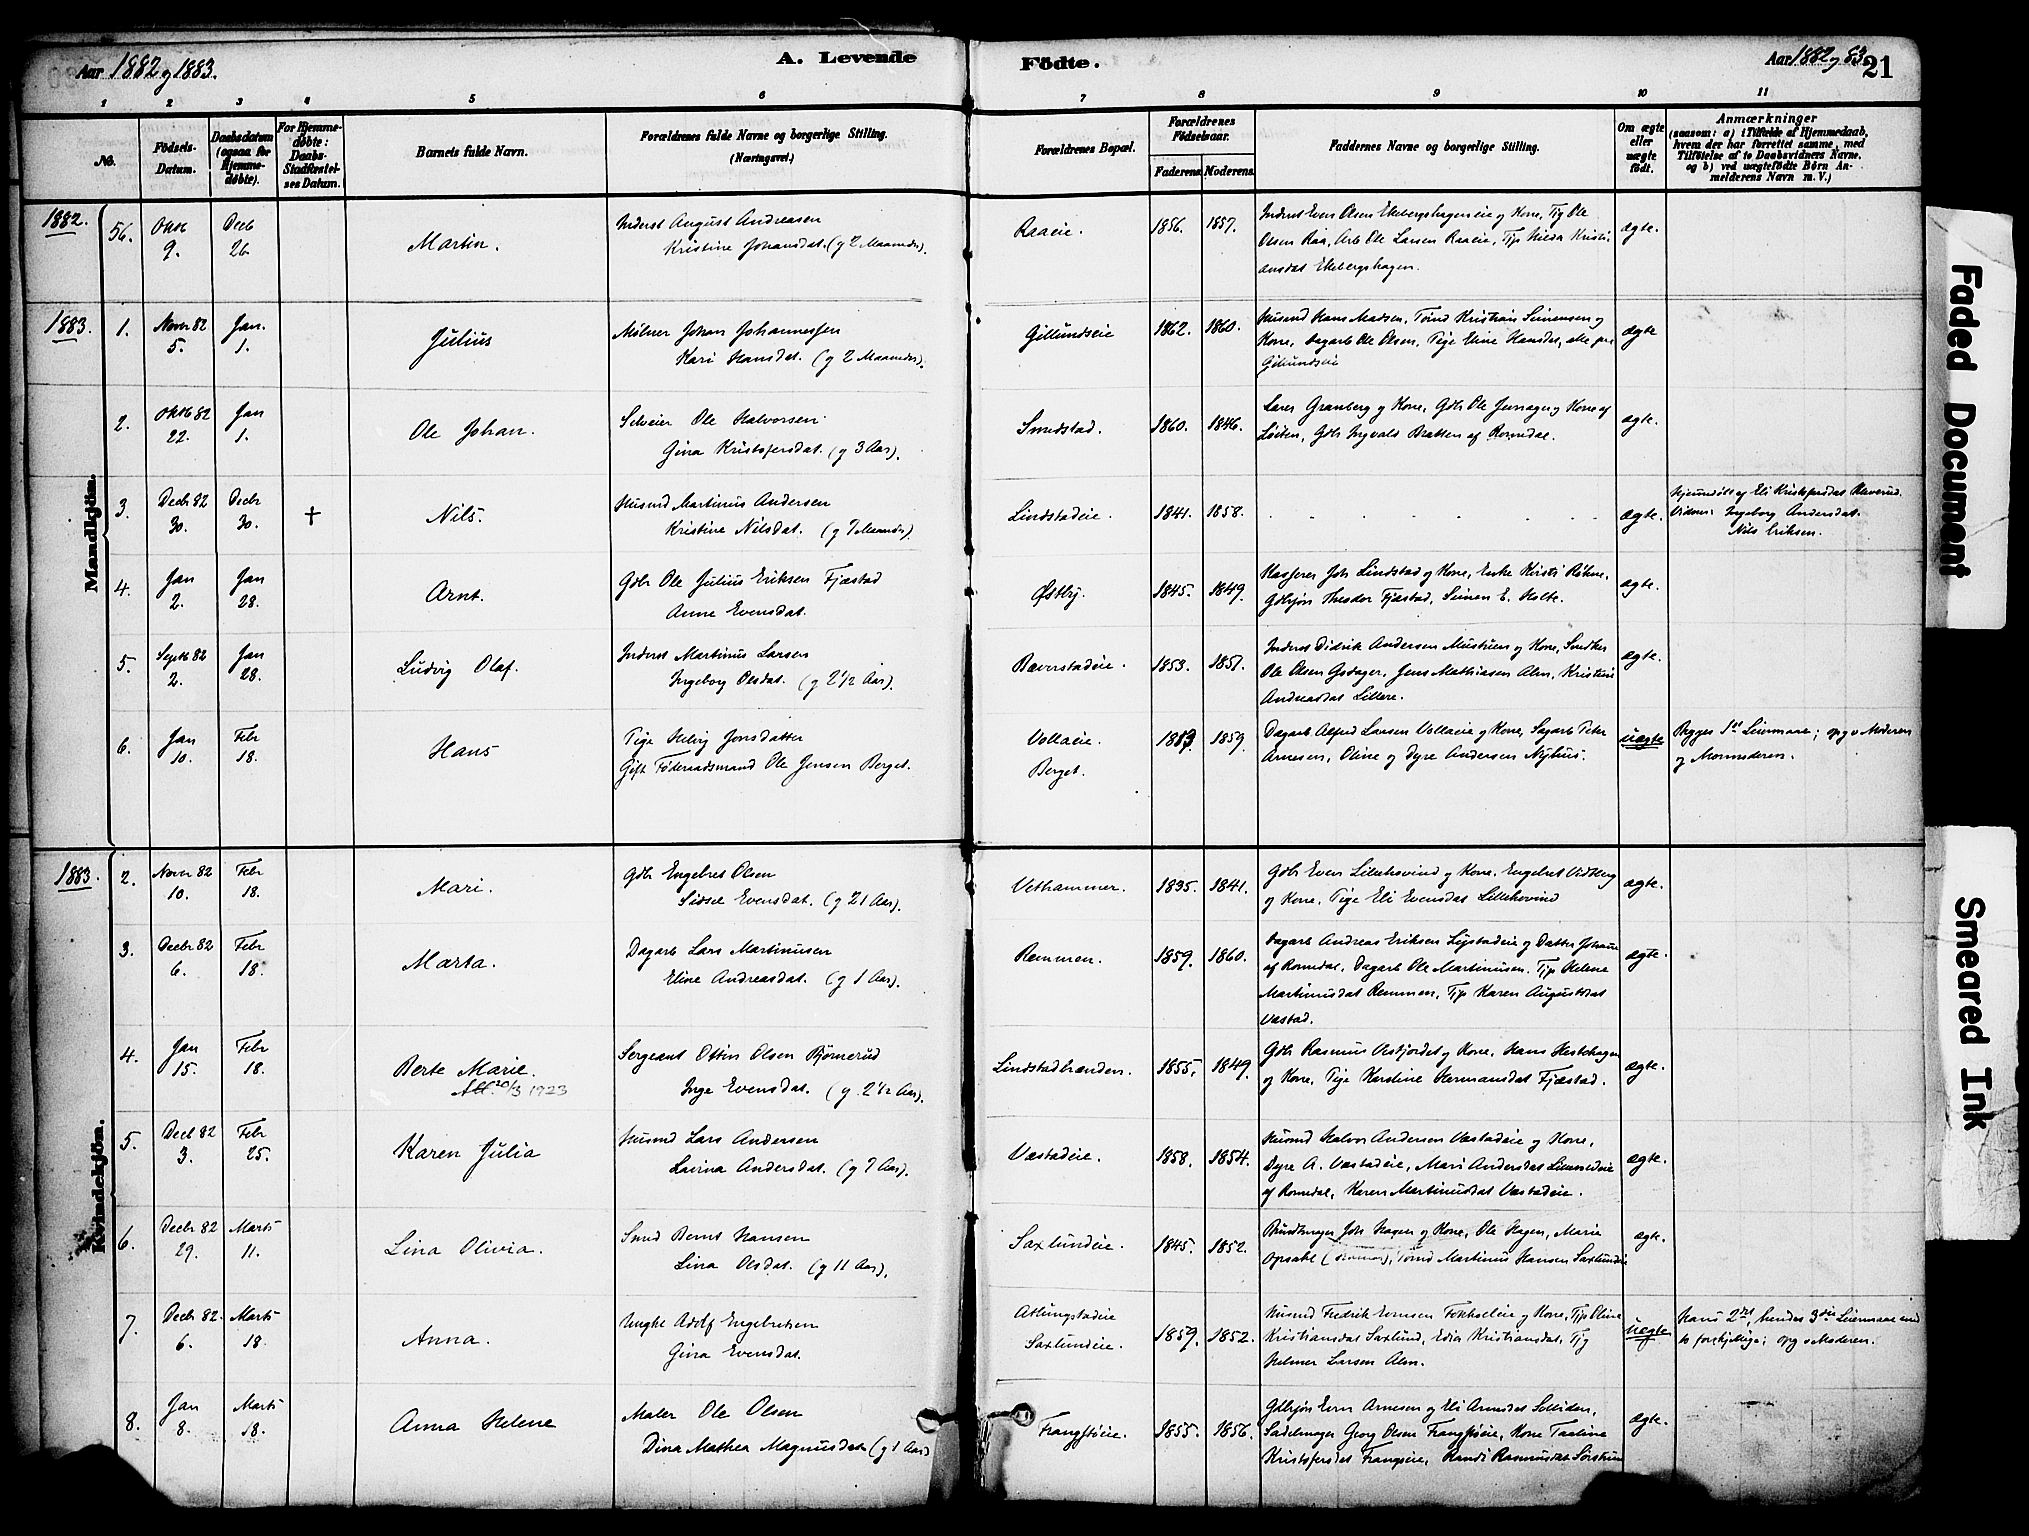 Aar 1882 og 1883.
A. Levende
Födte.
Aar 1882 og 83.
21
1 2 3 4 5 6 7 8 9 10 11
No.
Födsels-
Datum.
Daabsdatum
(ogsaa for
Hjemme-
döbte).
For Hjemme-
döbte:
Daabs-
Stadfæstel-
ses Datum.
Barnets fulde Navn.
Forældrenes fulde Navne og borgerlige Stilling.
(Næringsvei.)
Forældrenes Bopæl.
Forældrenes
Födselsaar.
Faderens
Moderens.
Faddernes Navne og borgerlige Stilling.
Om ægte
eller
uægte
födt.
Anmærkninger
(saasom: a) i Tilfælde af Hjemmedaab,
hvem der har forrettet samme, med
Tilföielse af to Daabsvidners Navne,
og b) ved uægtefödte Börn An-
melderens Navn m. V.)
Mandkjön.
1882.
56.
Oktb
9.
Decb
26
Martin.
Inderst August Andreasen
Kristine Johansdat. (g 2 Maaneder).
Raaeie.
1856.
1857.
Inderst Even Olsen Ekebergshageneie og Kone, Tjg Ole
Olsen Raa, Arb Ole Larsen Raaeie, Tjp Hilda Kristi-
ansdat Ekebergshagen.
ægte.
1883.
1.
Novr 82
5.
Jan.
1.
Julius
Mölner Johan Johannessen
Kari Hansdat. (g 2 Maaneder).
Gillundseie
1862.
1860.
Husmd Hans Madsen, Tömd Kristian Simensen og
Kone, Dagarb Ole Olsen, Pige Eline Hansdat, alle paa
Gillundseie
ægte
2.
Oktb 82
22.
Jan
1.
Ole Johan.
Selveier Ole Halvorsen
Gina Kristofersdat. (g 3 Aar).
Smedstad.
1860.
1846.
Lars Granberg og Kone, Gdbr Ole Jernager og Kone af
Löiten, Gdbr Ingvald Bratten af Romedal.
ægte.
3.
Decbr 82
30.
Decbr
30.
†
Nils.
Husmd Martinus Andersen
Kristine Nilsdat. (g 7 Maaneder).
Lindstadeie.
1841.
1858.
ægte.
Hjemmdöbt af Eli Kristofersdat
Vidner: Ingeborg Andersdat.
Nils Eriksen.
4.
Jan
2.
Jan
28.
Arnt.
Gdbr Ole Julius Eriksen Fjæstad
Anne Evensdat.
Østby.
1845.
1849.
Kasserer Joh Lindstad og Kone, Enke Kirsti Röhne,
Gdbrsön Theodor Fjæstad, Simen E. Holte.
ægte.
5.
Septb 82
2.
Jan
28.
Ludvig Olaf.
Inderst Martinus Larsen
Ingeborg Olsdat. (g 2 1/2 Aar).
Bæverstadeie.
1853.
1851.
Inderst Didrik Andersen Mustrøen og Kone, Snedker
Ole Olsen Opsager, Jens Mathiasen Alm, Kristine
Andreasdat Lillere.
ægte.
6.
Jan
10.
Febr
18.
Hans
Pige Helvig Jonsdatter
Gift Föderaadsmand Ole Jensen Berget.
Vollaeie.
Berget.
1813.
1859.
Dagarb Alfred Larsen Vollaeie og Kone, Sagarb Peter
Arnesen, Oline og Dyre Andersen Nyhus.
uægte
Begges 1ste Leiermaal; opg v Moderen
og Mormoderen.
Kvindekjön.
1883.
2.
Novr 82
10.
Febr
18.
Mari.
Gdbr Engebret Olsen
Sidsel Evensdat. (g 21 Aar).
Vethammer.
1835.
1841.
Gdbr Even Lillehovind og Kone, Engebret Vidberg
og Kone, Pige Eli Evensdat Lillehovind
ægte.
3.
Decbr 82
6.
Febr
18.
Marta.
Dagarb Lars Martinusen
Eline Andreasdat. (g 1 Aar).
Remmen.
1859.
1860.
Dagarb Andreas Eriksen Lystadeie og Datter Johanne
af Romedal, Dagarb Ole Martinusen, Tjp Helene
Martinusdat Remmen, Tjp Karen Augustdat
Væstad.
ægte.
4.
Jan
15.
Febr
18.
Berte Marie.
20/3 1923
Sergeant Ottin Olsen Björnerud
Inge Evensdat. (g 2 1/2 Aar).
Lindstadbrænden.
1855.
1849.
Gdbr Rasmus Vestfjordet og Kone, Hans Hestehagen
og Kone, Pige Karoline Hermansdat Fjæstad.
ægte.
5.
Decb 82
3.
Febr
25.
Karen Julia
Husmd Lars Andersen
Lovina Andersdat. (g 7 Aar).
Væstadeie.
1858.
1854.
Husmd Halvor Andersen Væstadeie og Kone,
Dyre A. Væstadeie, Mari Andersdat
af Romedal, Karen Martinusdat Væstadeie.
ægte.
6.
Decbr 82
29.
Marts
11.
Lina Olivia.
Smed Bernt Hansen
Lina Olsdat. (g 11 Aar).
Saxlundeie.
1845.
1852.
Bundtmager Joh Hagen og Kone, Ole Hagen, Marie
Opsahl, Tömd Martinus Hansen Saxlundeie
ægte.
7.
Decbr 82
6.
Marts
18.
Anna.
Ungkl Adolf Engebretsen
Gina Evensdat.
Atlungstadeie
Saxlundeie.
1859.
1852.
Husmd Fredrik Evensen Fokholeie og Kone, Tjp Oline
Kristiansdat Saxlund, Edis Kristiansdat, Tjg
Helmer Larsen Alm.
uægte
Hans 2det, hendes 3die Leiermaal med
to forskjellige; opg v Moderen.
8.
Jan
8.
Marts
18.
Anna Helene
Maler Ole Olsen
Dina Mathea Magnusdat (g 1 Aar)
Frangstöeie.
1855.
1856.
Gdbrsön Even Arnesen og Eli Arnesdat Solliden,
Sadelmager Georg Olsen Frangstöeie, Kone Taaline
Kristofersdat Frangseie, Randi Rasmusdat Sörstrøen
ægte.
Faded Document
Smeared Ink